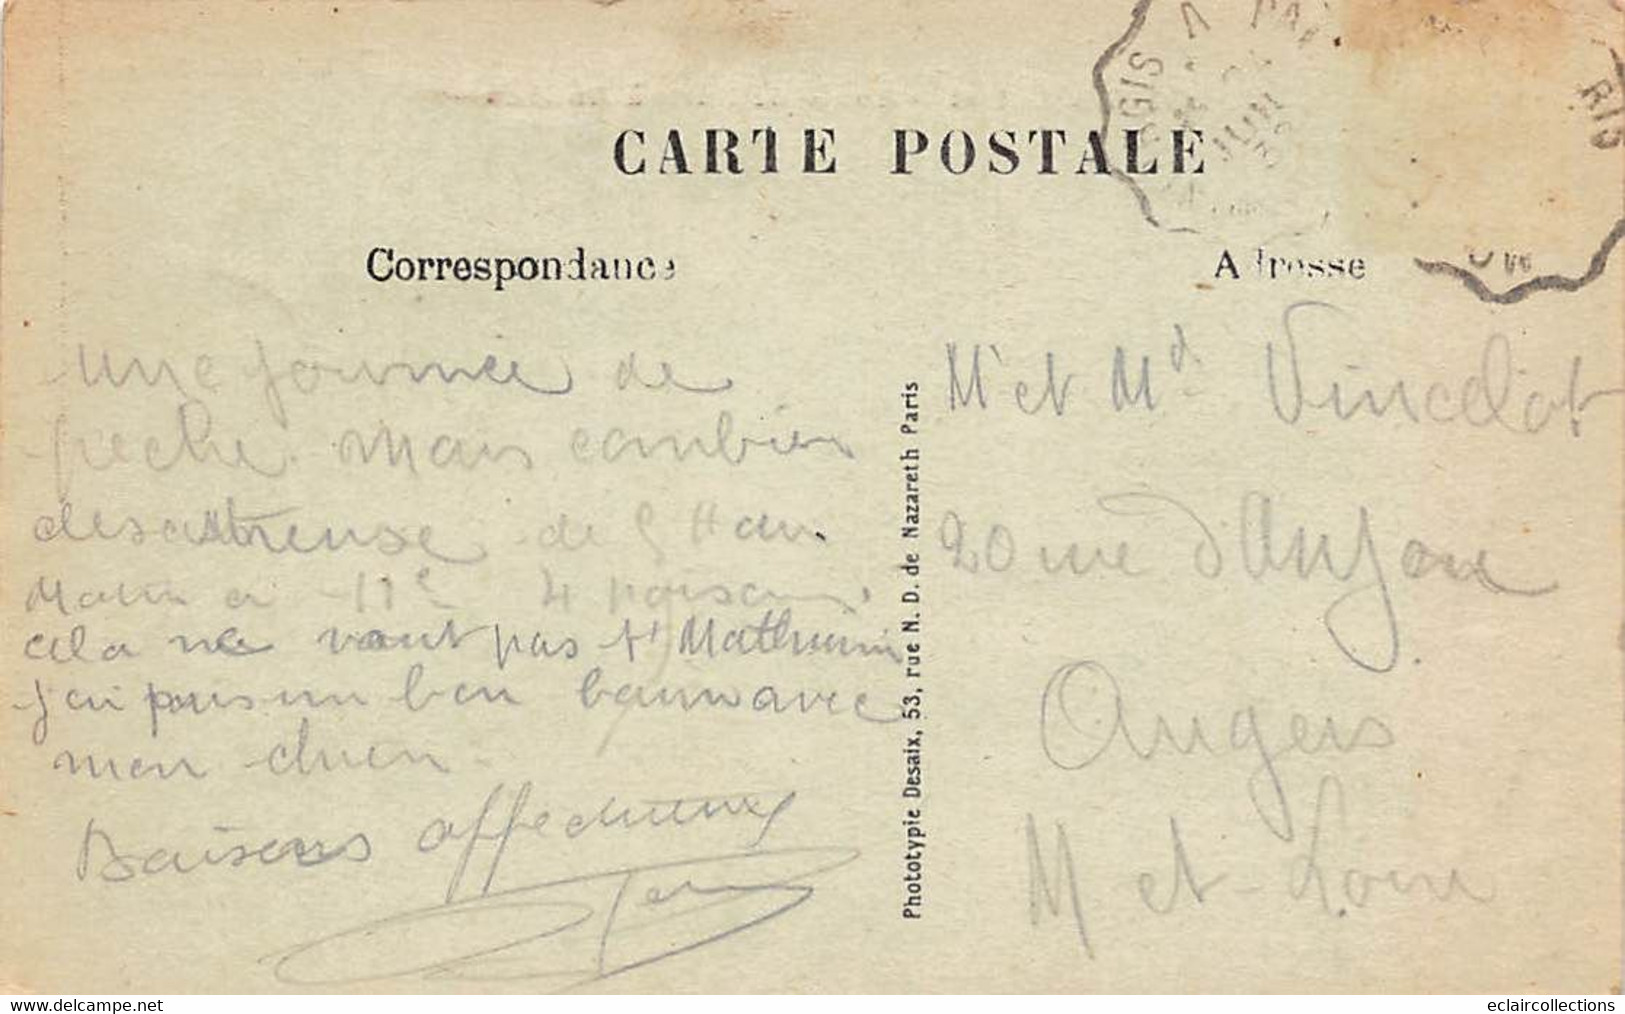 CARTE POSTALE
Correspondance
Adresse
une journée de
peche. Mais combien
desastreuse de 5 H du
Matin a 11 e 4 poissons,
cela ne vaut pas St Mathurin
j'ai pris un bon bain avec
mon chien.
Baisers affectueux
Mr et Md Vincelot
20 rue d'Anjou
Angers
M et Loire
Phototypie Desaix, 53, rue N. D. de Nazareth Paris
JUIN
RIS
eclaircollections